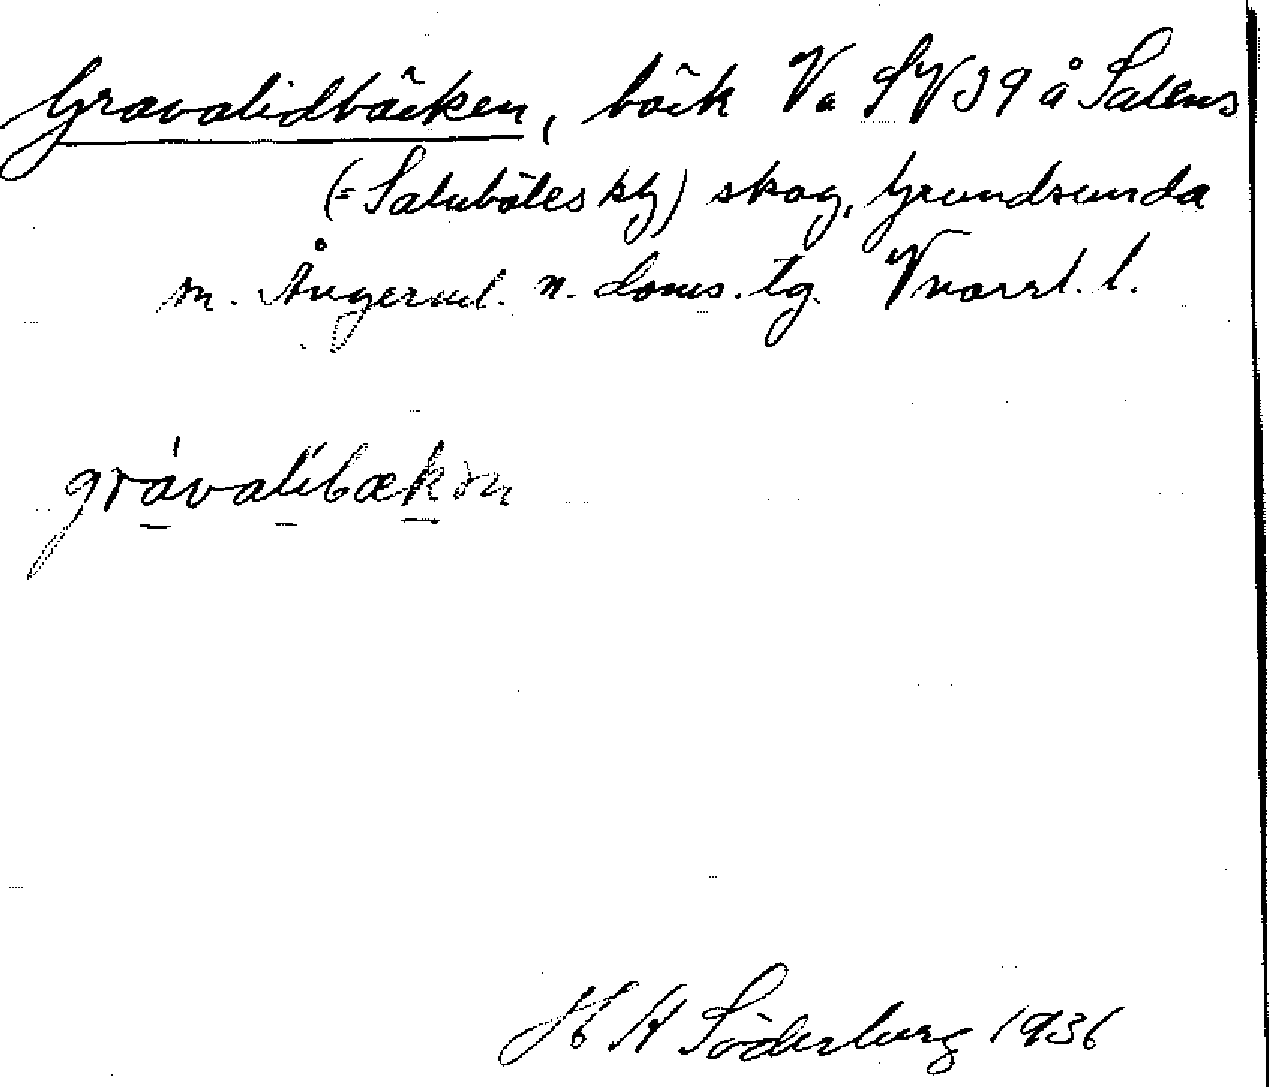 Gravalidbäcken, bäck Va SV39 å Salens
(= Salubölesby) skog, Grundsunda
sn. Ångerml. n. doms. tg. Vnorrl. l.
gràvalibækən
H A Söderberg 1936